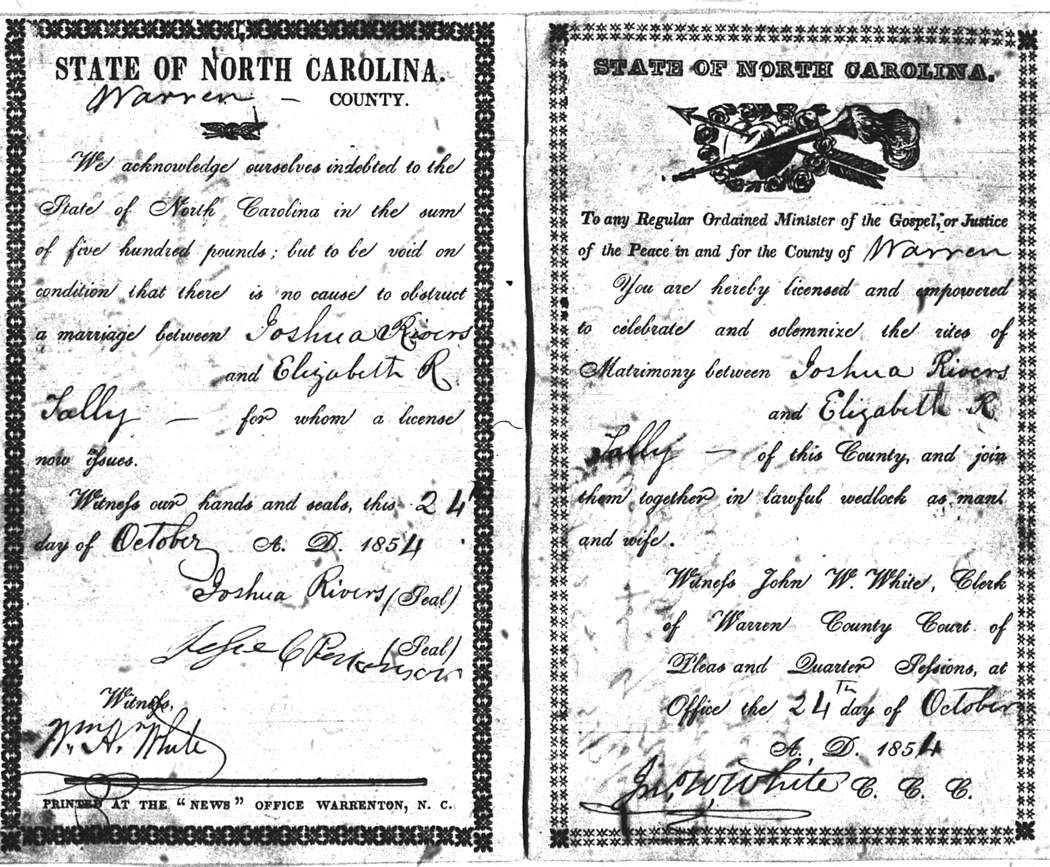 STATE OF NORTH CAROLINA.
Warren — COUNTY.
We acknowledge ourselves indebted to the
State of North Carolina in the sum
of five hundred pounds; but to be void on
condition that there is no cause to obstruct
a marriage between Joshua Rivers
and Elizabeth R
Tally — for whom a license
now issues.
Witness our hands and seals, this 24
day of October A. D. 1854
Joshua Rivers (Seal)
C Perkinson (Seal)
Witness,
Wm A. White
PRINTED AT THE "NEWS" OFFICE WARRENTON, N. C.
STATE OF NORTH CAROLINA.
To any Regular Ordained Minister of the Gospel, or Justice
of the Peace in and for the County of Warren
You are hereby licensed and empowered
to celebrate and solemnize the rites of
Matrimony between Joshua Rivers
and Elizabeth R
Tally — of this County, and join
them together in lawful wedlock as man
and wife.
Witness John W. White, Clerk
of Warren County Court of
Pleas and Quarter Sessions, at
Office the 24th day of October
A. D. 1854
Jno W White C. C. C.